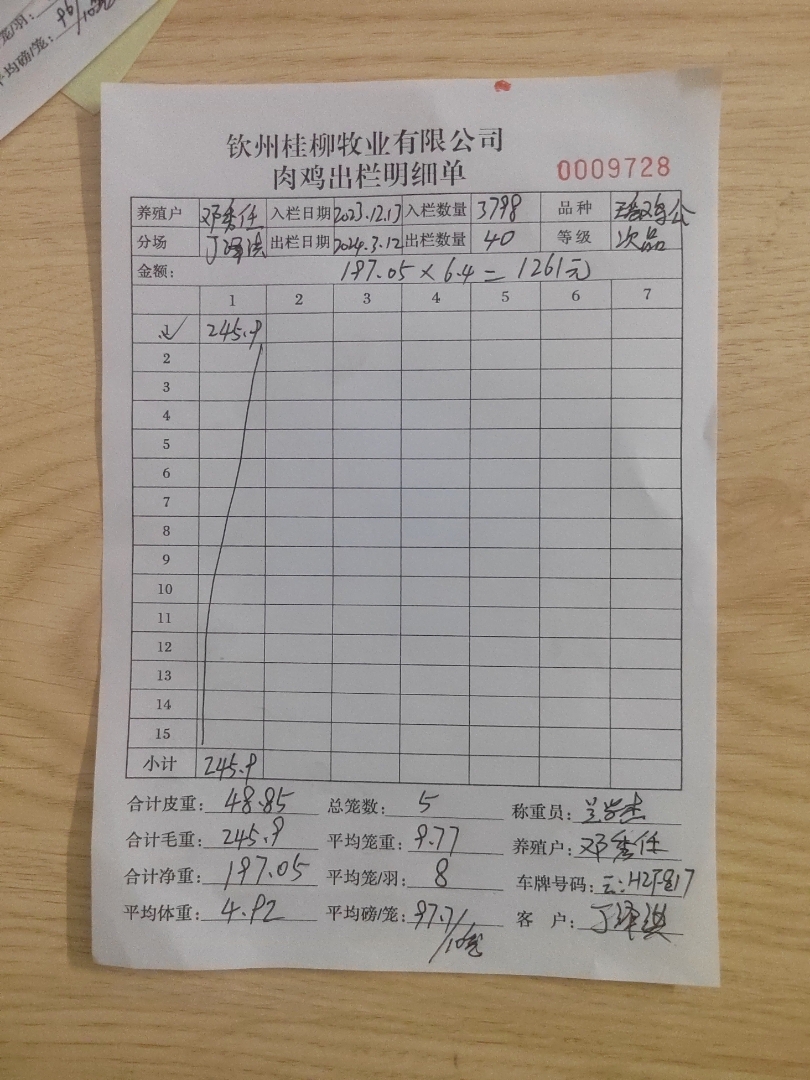 笼/羽:
平均磅/笼: 96/10笼
钦州桂柳牧业有限公司
肉鸡出栏明细单
0009728
养殖户 邓秀任 入栏日期 2023.12.17 入栏数量 3798 品种
分场 丁泽洪 出栏日期 2024.3.12 出栏数量 40 等级 次品
金额: 197.05 × 6.4 = 1261元
1 2 3 4 5 6 7
245.9
2
3
4
5
6
7
8
9
10
11
12
13
14
15
小计 245.9
合计皮重: 48.85 总笼数: 5 称重员:
合计毛重: 245.9 平均笼重: 9.77 养殖户: 邓秀任
合计净重: 197.05 平均笼/羽: 8 车牌号码:
平均体重: 4.92 平均磅/笼: 97.7/10笼 客 户: 丁泽洪